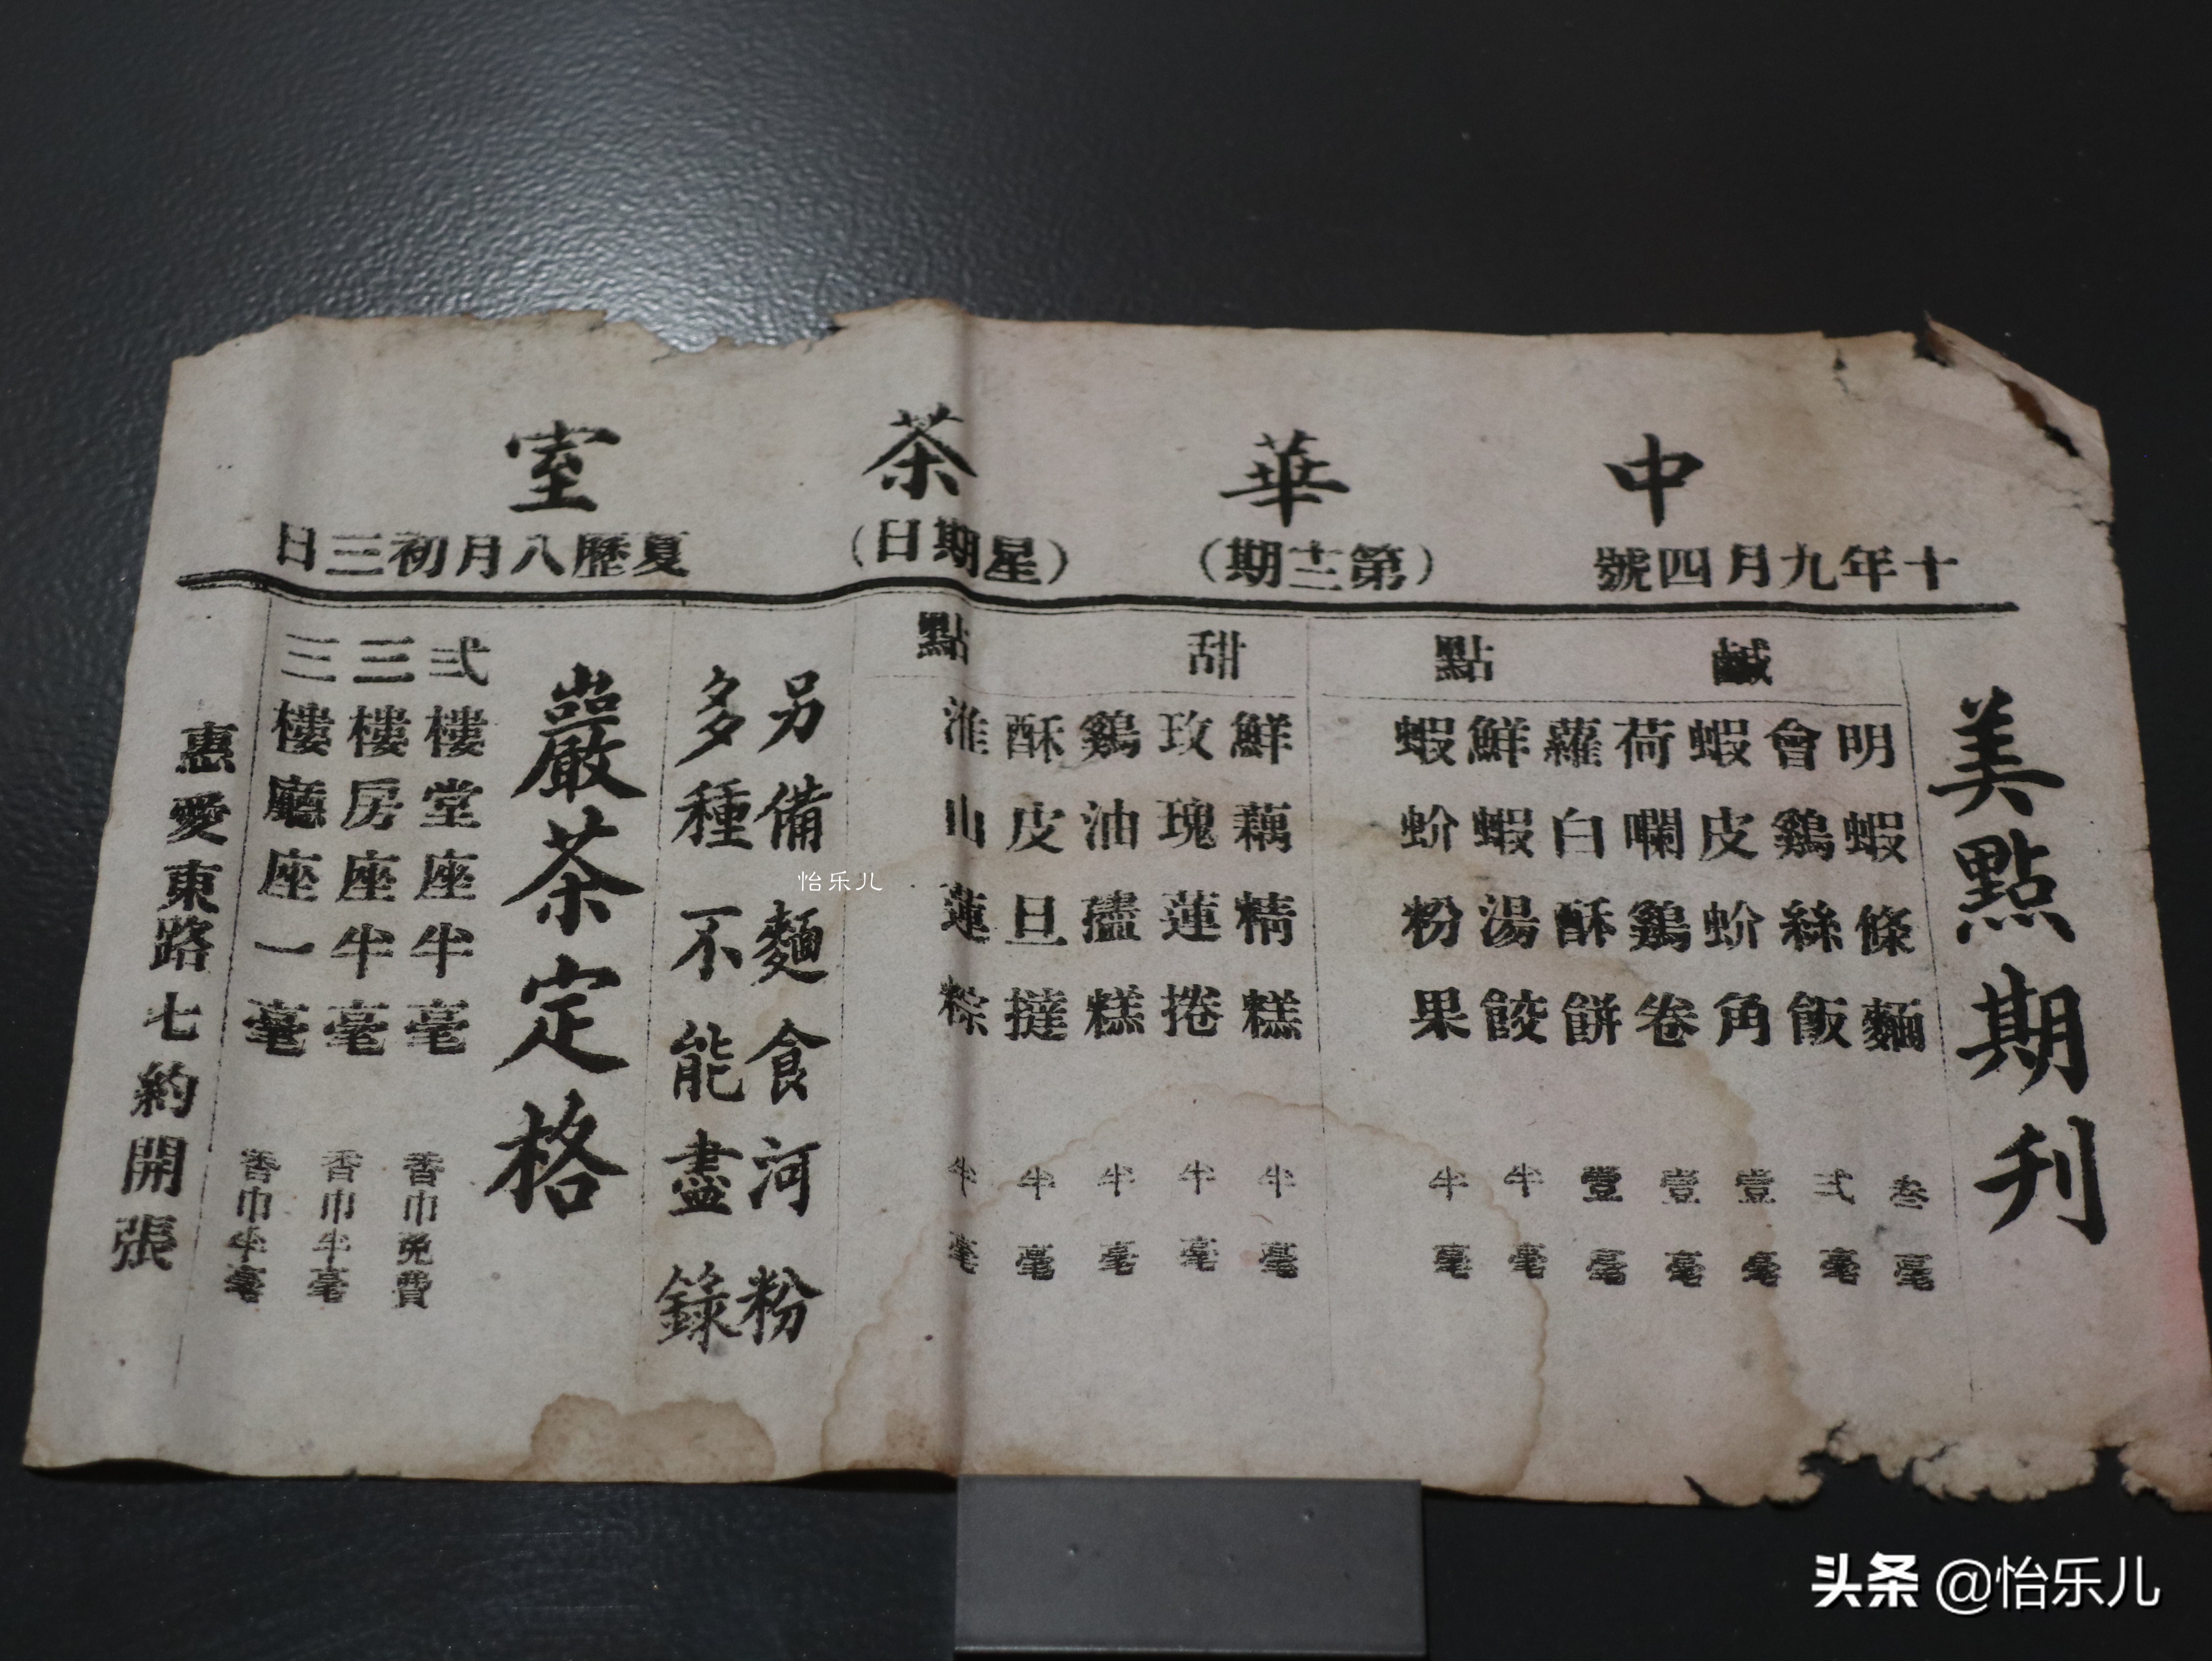 中華茶室
十年九月四號
(第 期)
(星期日)
夏歷八月初三日
美點期刊
鹹點
明蝦條麵 叁毫
會鷄絲飯 弍毫
蝦皮蚧角 壹毫
荷囒鷄卷 壹毫
蘿白酥餅 壹毫
鮮蝦湯餃 半毫
蝦蚧粉果 半毫
甜點
鮮藕精糕 半毫
玫瑰蓮捲 半毫
鷄油孻糕 半毫
酥皮旦撻 半毫
淮山蓮粽 半毫
另備麵食河粉
多種不能盡錄
嚴茶定格
弍樓堂座半毫 香巾免費
三樓房座半毫 香巾半毫
三樓廳座一毫 香巾半毫
惠愛東路七約開張
怡乐儿
头条 @怡乐儿